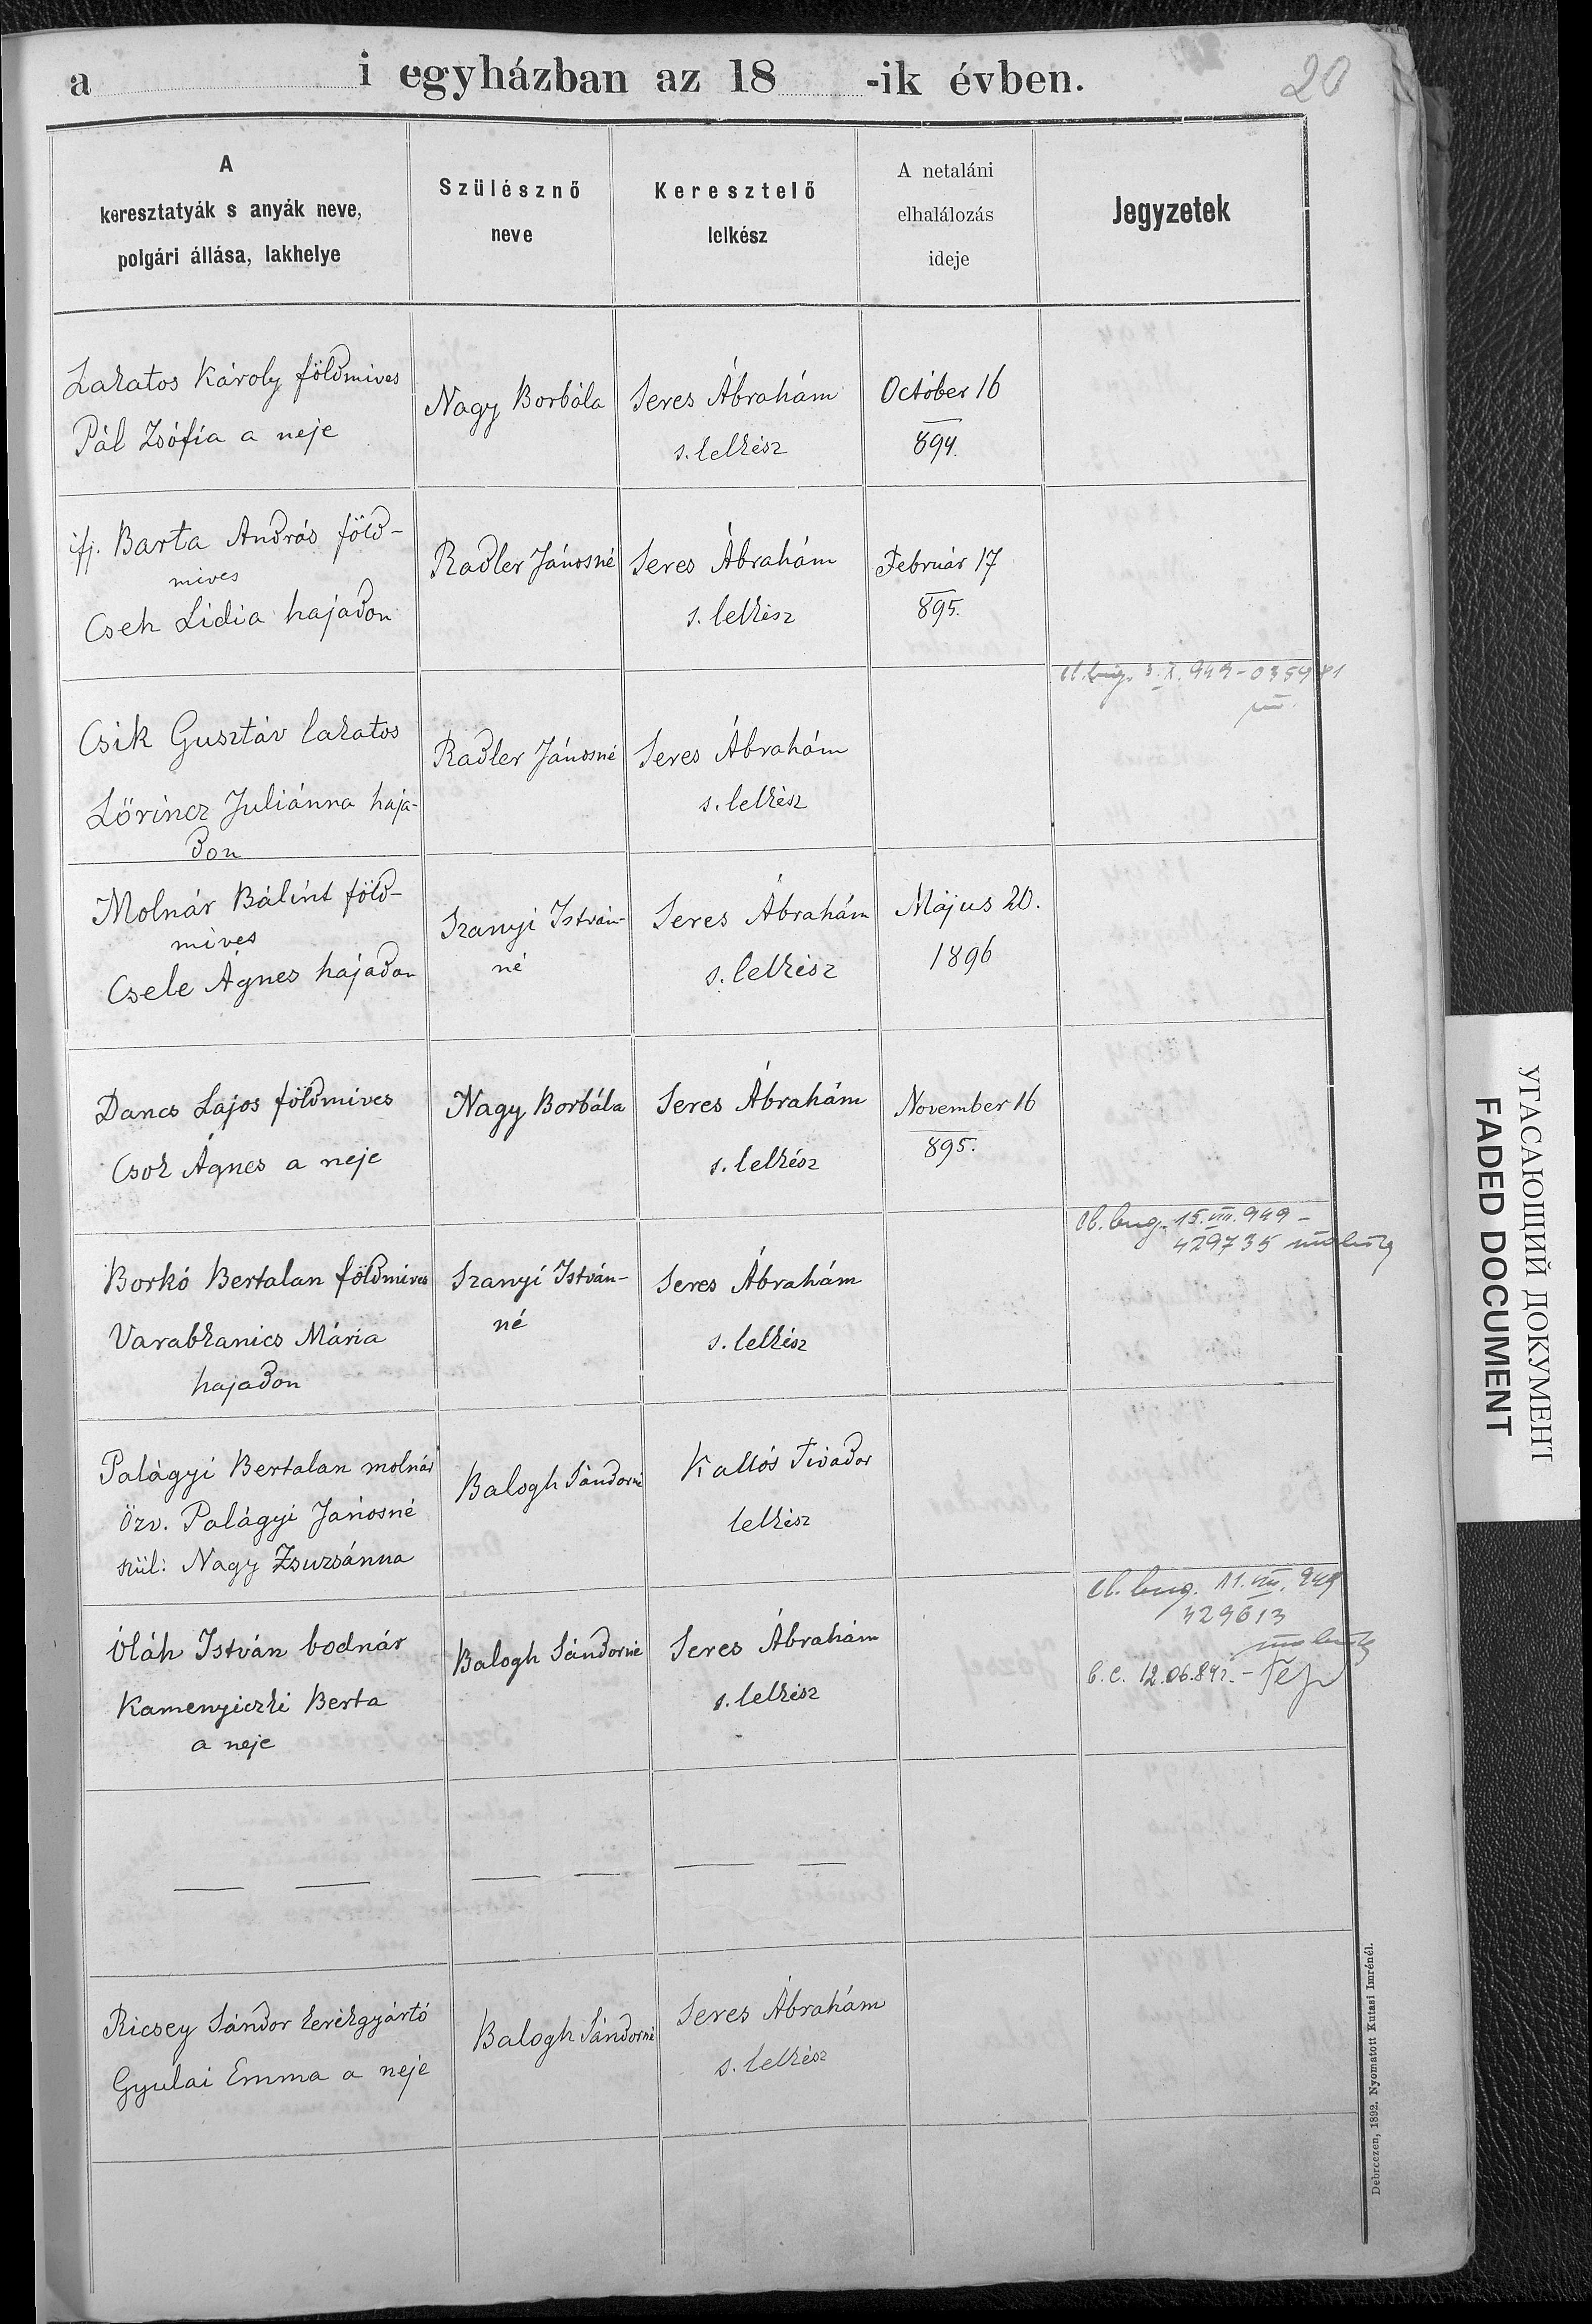 a i egyházban az 18 -ik évben. 20
A
keresztatyák s anyák neve,
polgári állása, lakhelye
Szülésznő
neve
Keresztelő
lelkész
A netaláni
elhalálozás
ideje
Jegyzetek
Lakatos Károly földmives
Pál Zsófia a neje
Nagy Borbála
Seres Ábrahám
s. lelkész
Október 16
894.
ifj. Barta András föld-
mives
Cseh Lidia hajadon
Radler Jánosné
Seres Ábrahám
s. lelkész
Február 17
895.
Csik Gusztáv lakatos
Lőrincz Juliánna haja-
don
Radler Jánosné
Seres Ábrahám
s. lelkész
Molnár Bálint föld-
mives
Csele Ágnes hajadon
Szanyi István-
né
Seres Ábrahám
s. lelkész
Május 20.
1896
Dancs Lajos földmives
Csok Ágnes a neje
Nagy Borbála
Seres Ábrahám
s. lelkész
November 16
895.
Borkó Bertalan földmives
Varabkanics Mária
hajadon
Szanyi István-
né
Seres Ábrahám
s. lelkész
15. VIII. 949 -
429735
Palágyi Bertalan molnár
özv. Palágyi Jánosné
szül: Nagy Zsuzsánna
Balogh Sándorné
Kallós Tivadar
lelkész
Oláh István bodnár
Kamenyiczki Berta
a neje
Balogh Sándorné
Seres Ábrahám
s. lelkész
11. VIII. 949
329613
Ricsey Sándor kerékgyártó
Gyulai Emma a neje
Balogh Sándorné
Seres Ábrahám
s. lelkész
Debreczen, 1892. Nyomatott Kutasi Imrénél.
УГАСАЮЩИЙ ДОКУМЕНТ
FADED DOCUMENT